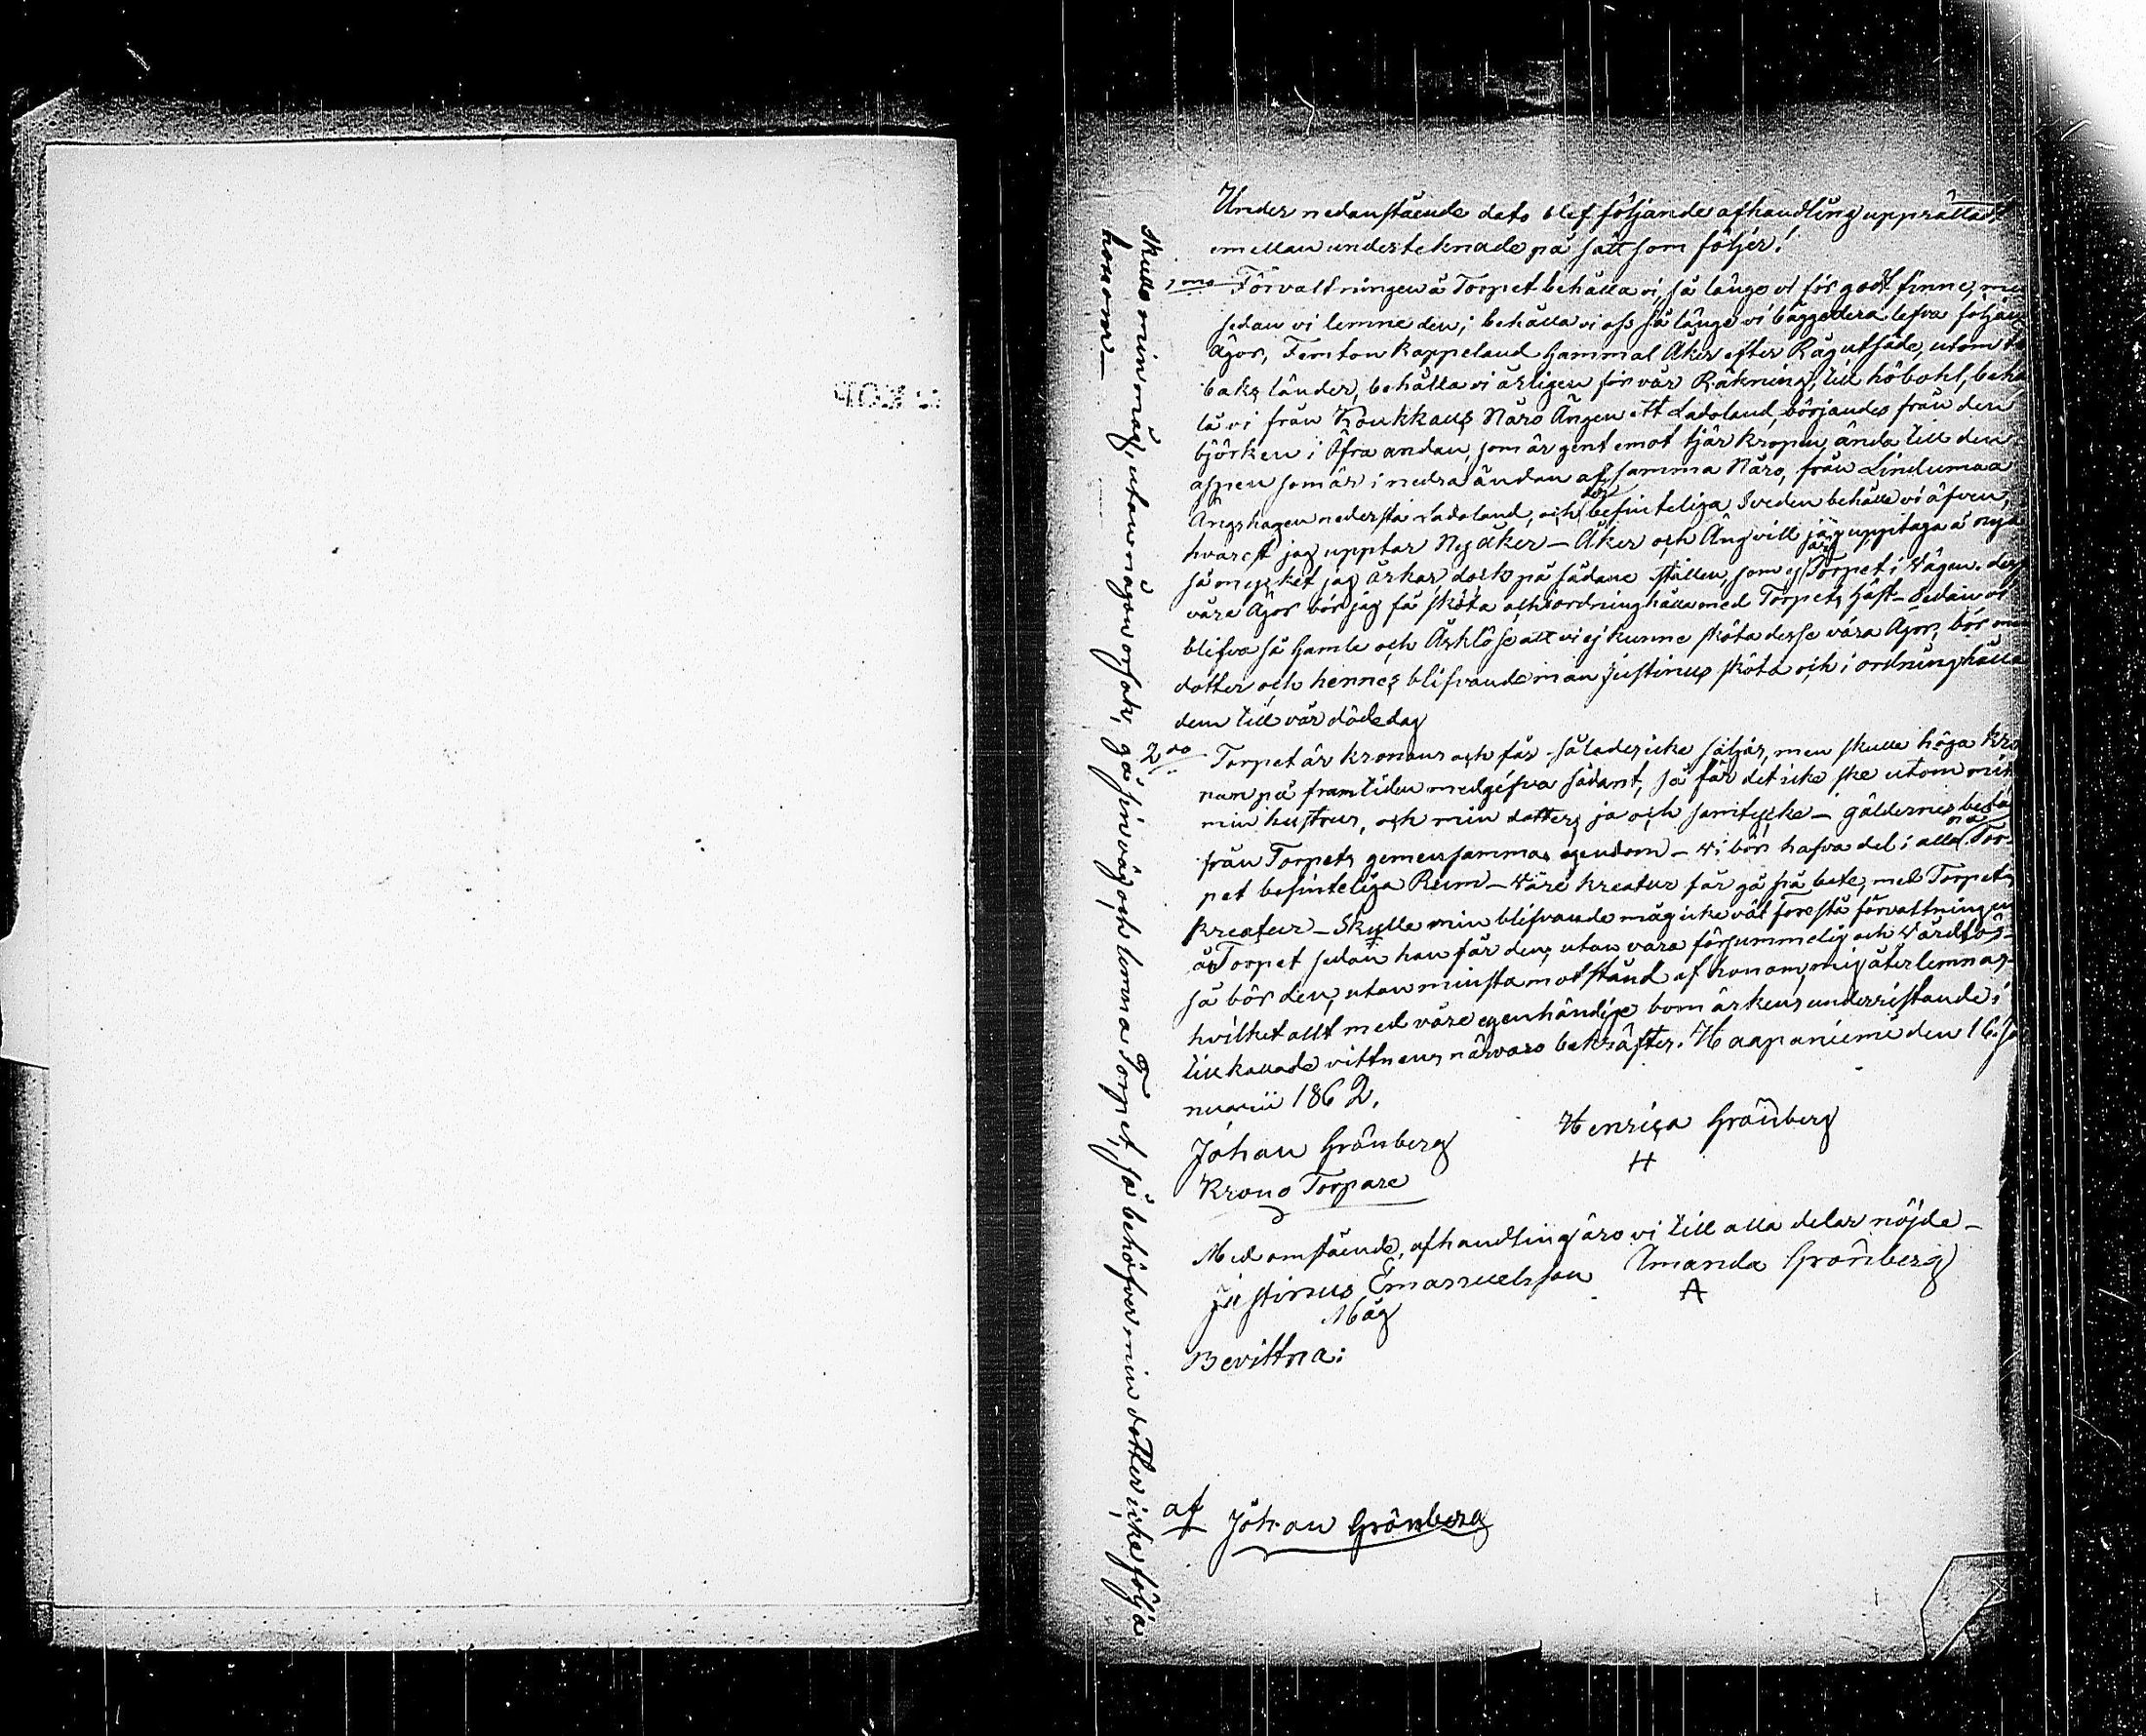 Under nedanstående dato blef följande afhandling upprättadt
emellan underteknade på sätt som följer!
1mo Förvaltningen å Torpet behålla vi, så länge vi för godt finne, me
sedan vi lemne den; behålla vi oss så länge vi båggedera lefva följan
Ägor, Femton kappeland Gammal Åker efter Råg utsäde, utom to
baks länder, behålla vi årligen för vår Räkning, till höbohl, behå
la vi från Koukkaus Näro Ängen ett Ladoland, börjandes från den
björken i Öfra andan, som är gent emot tjär kropen, ända till den
aspen som är i nedra ändan af samma Näro, från Lindumaa
Ängshagen nedersta Ladoland, och der befinteliga Sveden behålle vi äfven,
hvarest jag upptar Ny åker – Åker och Äng vill jag upptaga å nya
så mycket jag årkar dock på sådane ställen, som ej är Torpet i Vägen. des
våra Ägor bör jag få sköta och i ordning hålla med Torpets häst – Sedan vi
blifva så Gamle och Årklöse att vi ej kunne sköta desse våra Ägor, bör min
dotter och hennes blifvande man Justinus sköta och i ordning hålla
dem till vår döde dag
2do Torpet är kronans och får således icke säljas, men skulle höga kro
nan på framtiden medgifva sådant, så får det icke ske utom mitt
min hustrus, och min dotters ja och samtycke – gälderne beta
från Torpets gemensamma egendom – vi bör hafva del i alla på Tor-
pet befinteliga Rum – Våre kreatur får gå på bete, med Torpets
kreatur – Skulle min blifvande måg icke väl förestå förvaltningen
å Torpet sedan han får den, utan vara försummelig och Vårdslös –
så bör den, utan minsta motstånd af honom, mig återlemnas –
hvilket allt med våre egenhändige bomärkens underristande i
till kallade vittnens närvaro bekräftes. Haapaniemi den 16. Ja
nuarii 1862.
Johan Grönberg Henrica Grönberg
Krono Torpare H
Med omstående afhandling äro vi till alla delar nöjde –
Justinus Emanuelsson Amanda Grönberg
Måg A
Bevittna:
af Johan Grönberg
Skulle min måg, utan någon orsak, gå sin väg och lemna Torpet, så behöfver min dotter icke följa
honom –